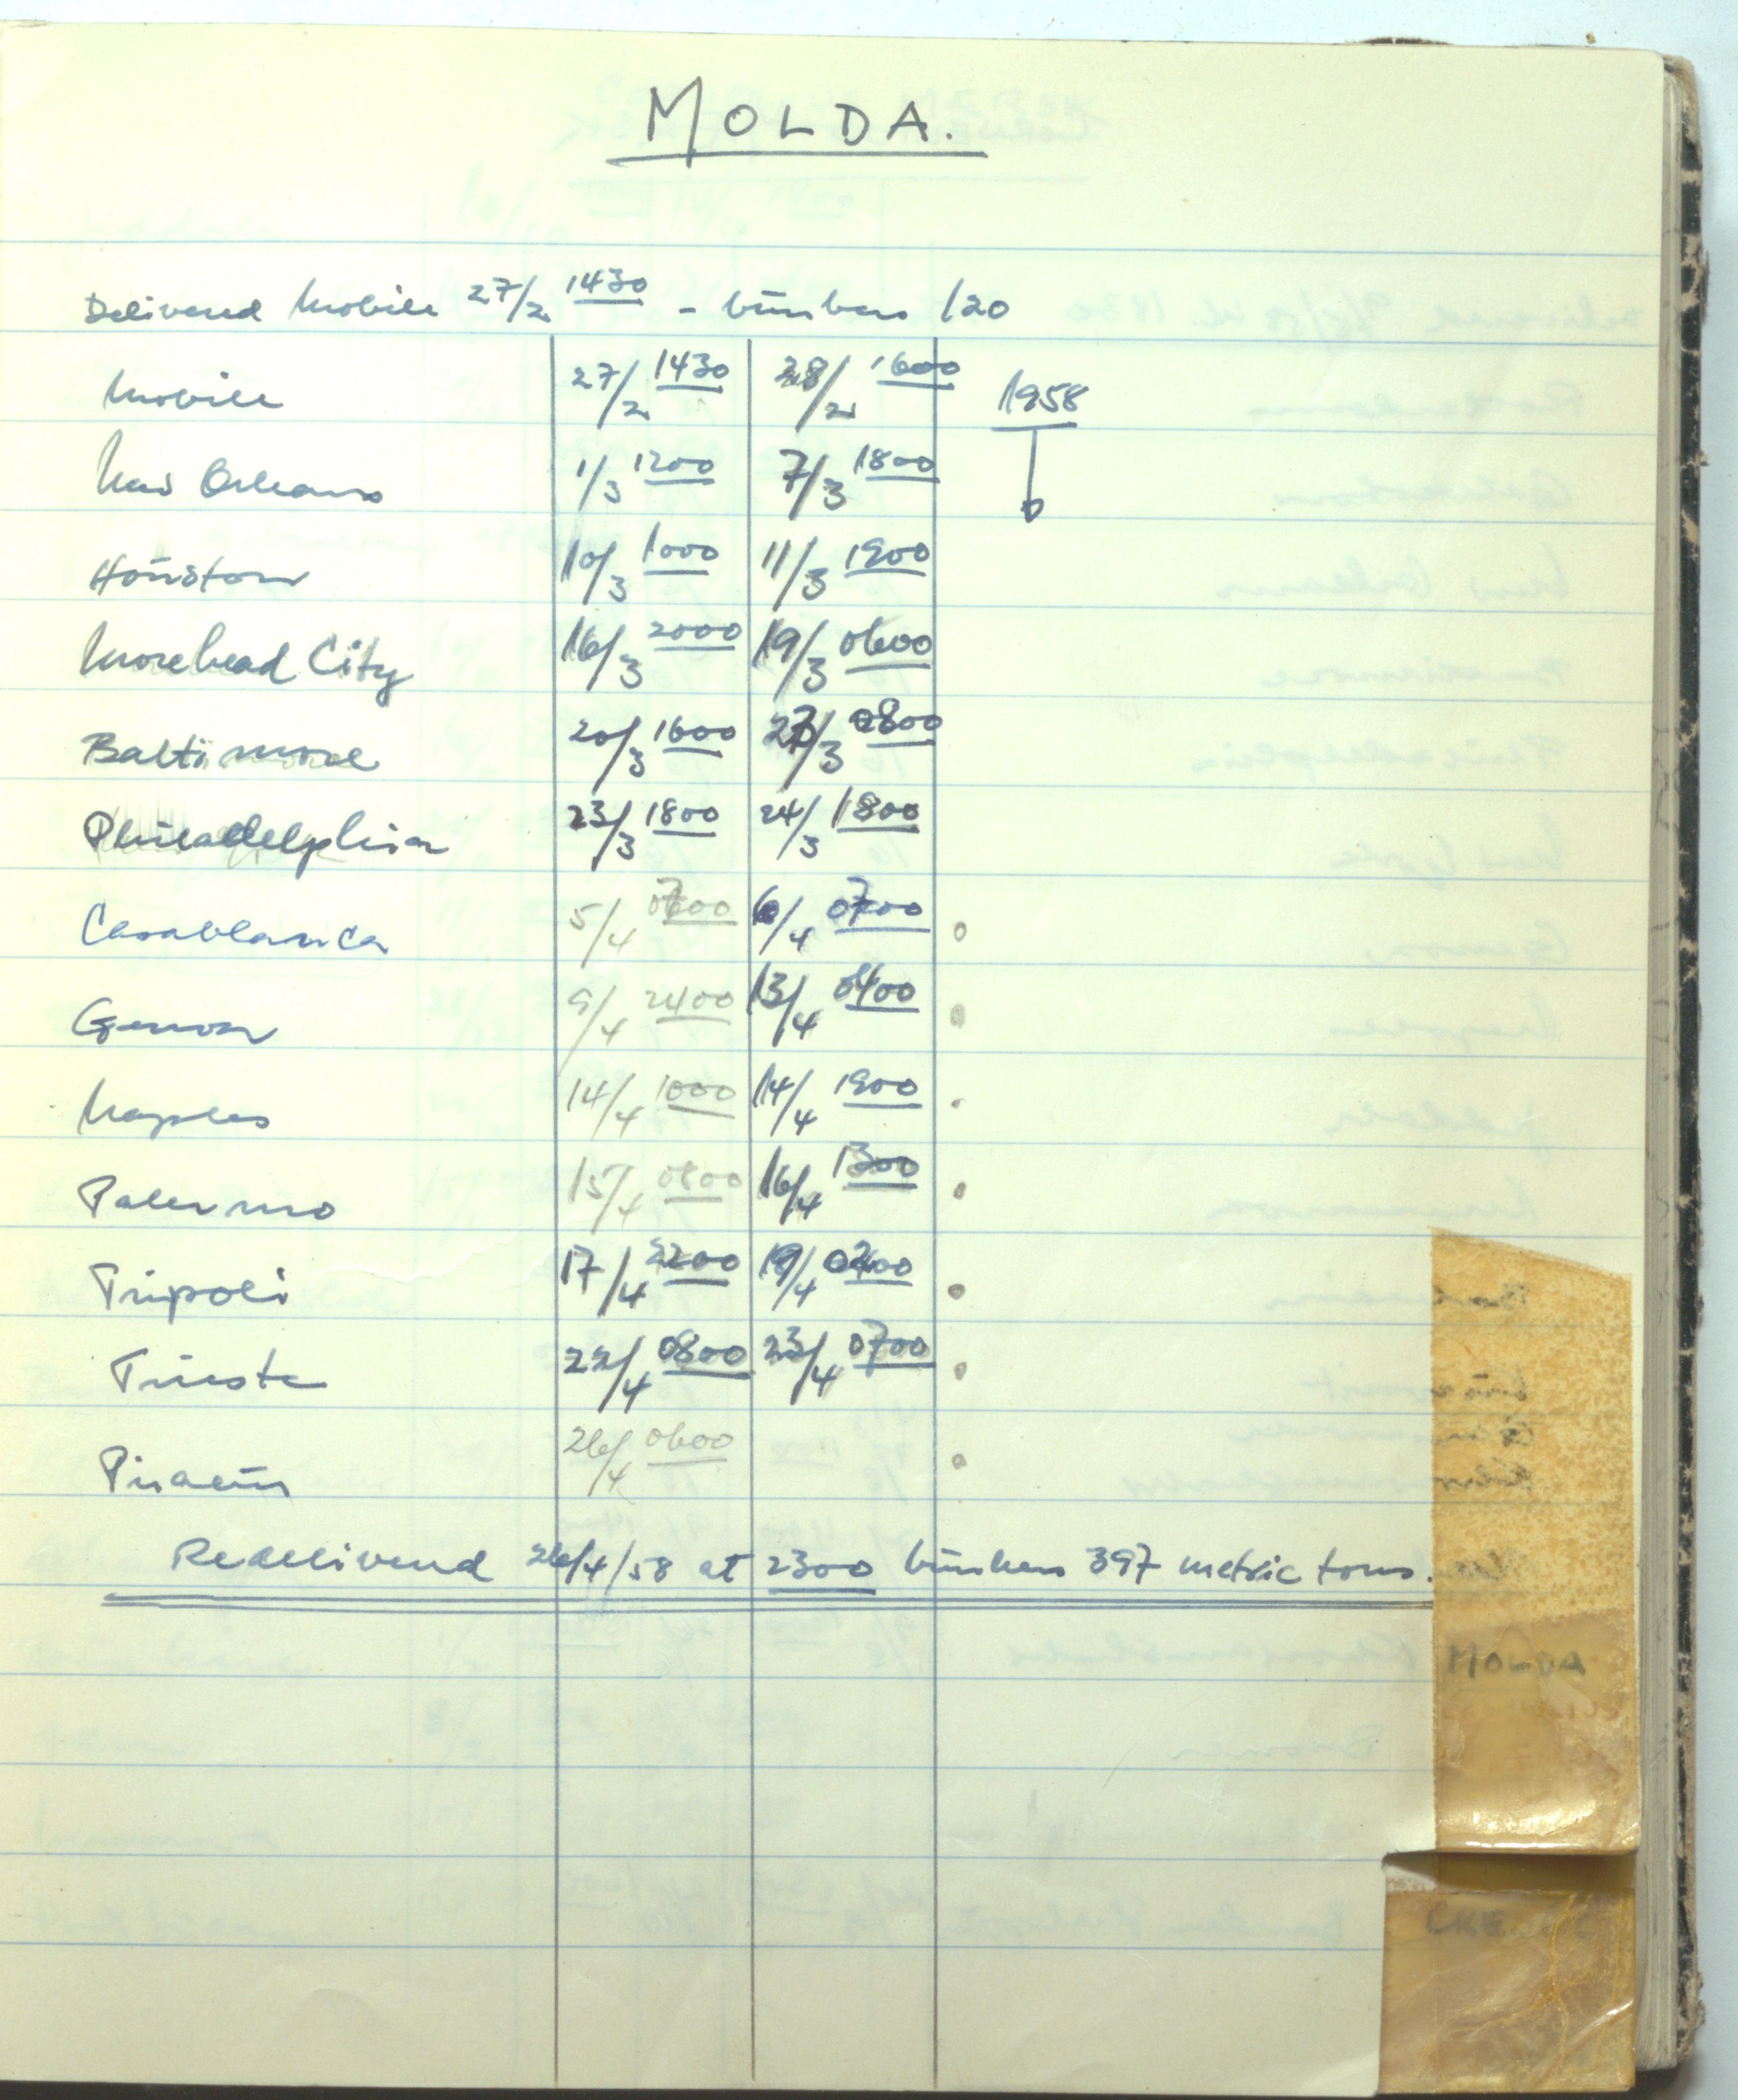 MOLDA.
Delivered Mobile 27/2 1430 - bunkers 120
Mobile 27/2 1430 28/2 1600 1958
New Orleans 1/3 1200 7/3 1800
Houston 10/3 1000 11/3 1900
Morehead City 16/3 2000 19/3 0600
Baltimore 20/3 1600 23/3 0800
Philadelphia 23/3 1800 24/3 1800
Casablanca 5/4 0700 6/4 0700
Genoa 9/4 2400 13/4 0400
Naples 14/4 1000 14/4 1900
Palermo 15/4 0800 16/4 1300
Tripoli 17/4 2200 19/4 0200
Trieste 22/4 0800 23/4 0700
Piraeus 26/4 0600
Redelivered 26/4/58 at 2300 bunkers 397 metric tons.
MOLDA